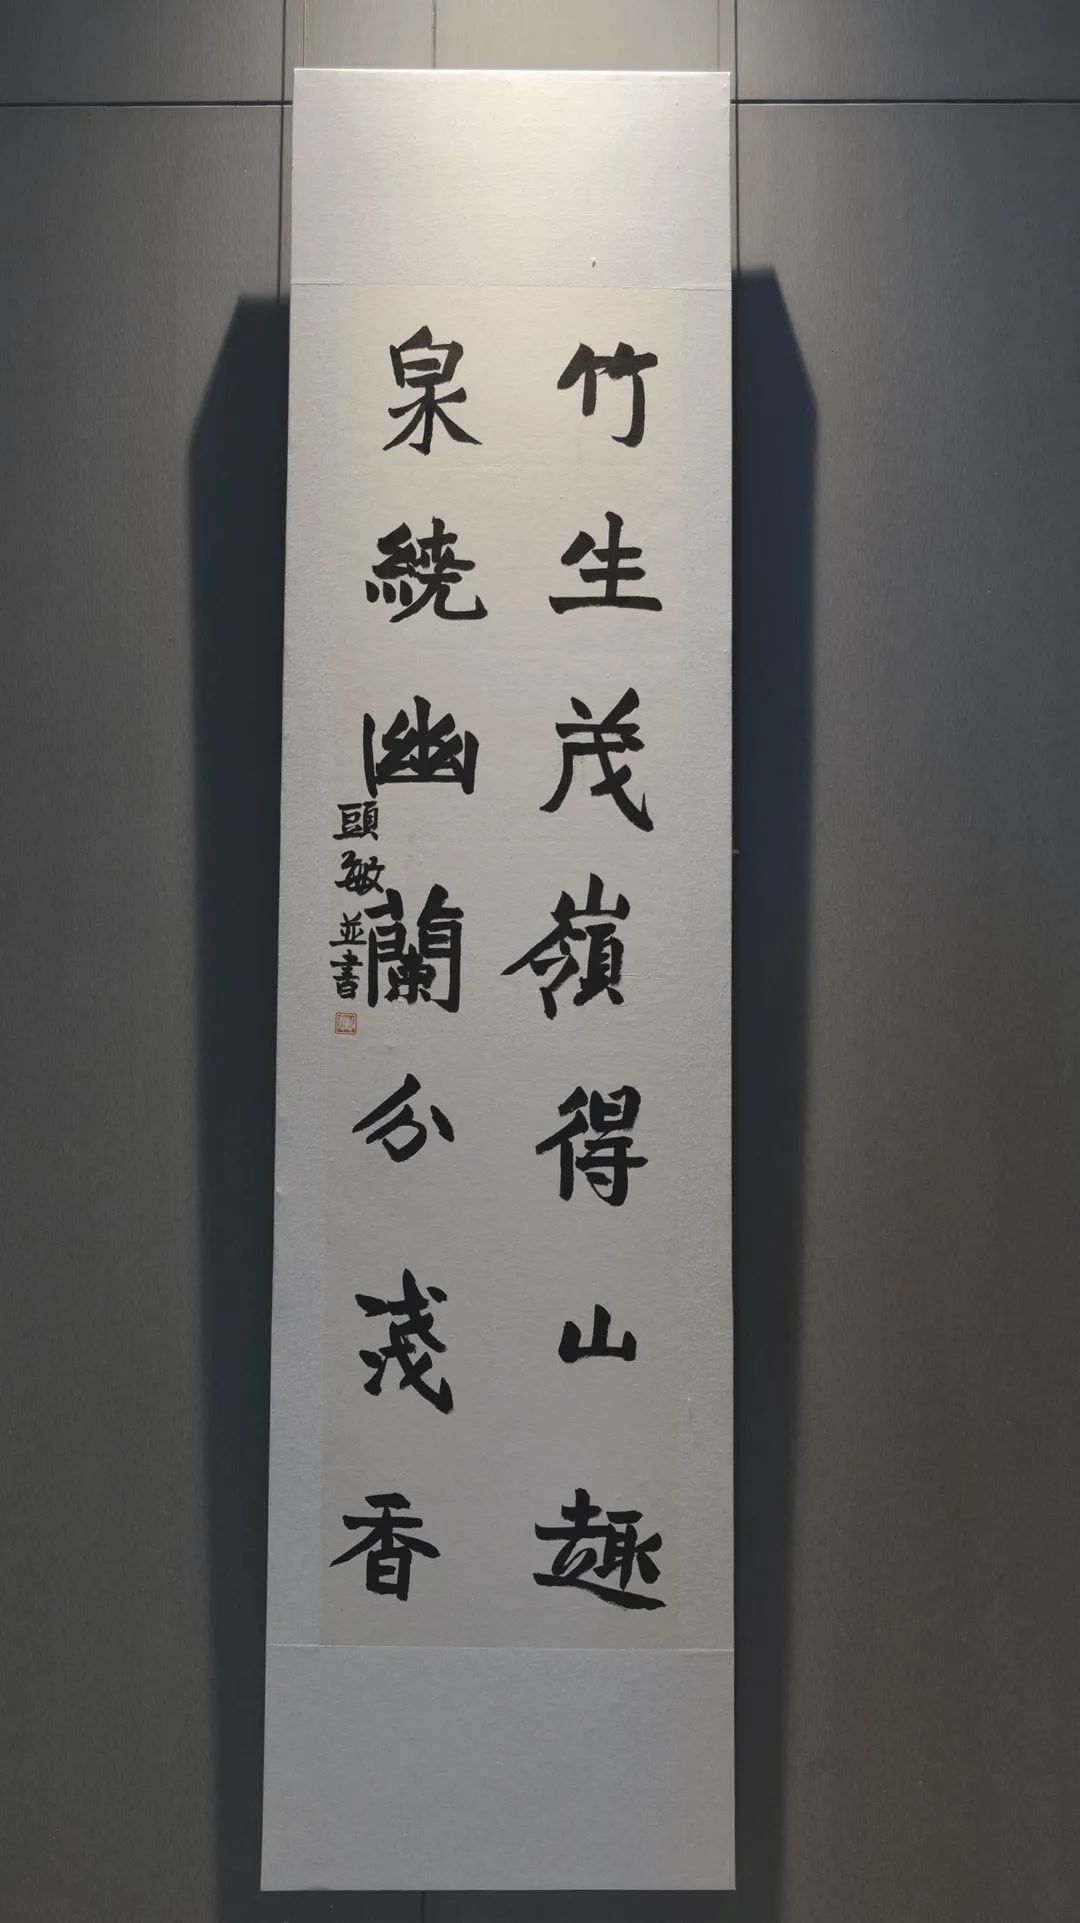 竹生茂嶺得山趣
泉繞幽蘭分淺香
頭敏並書